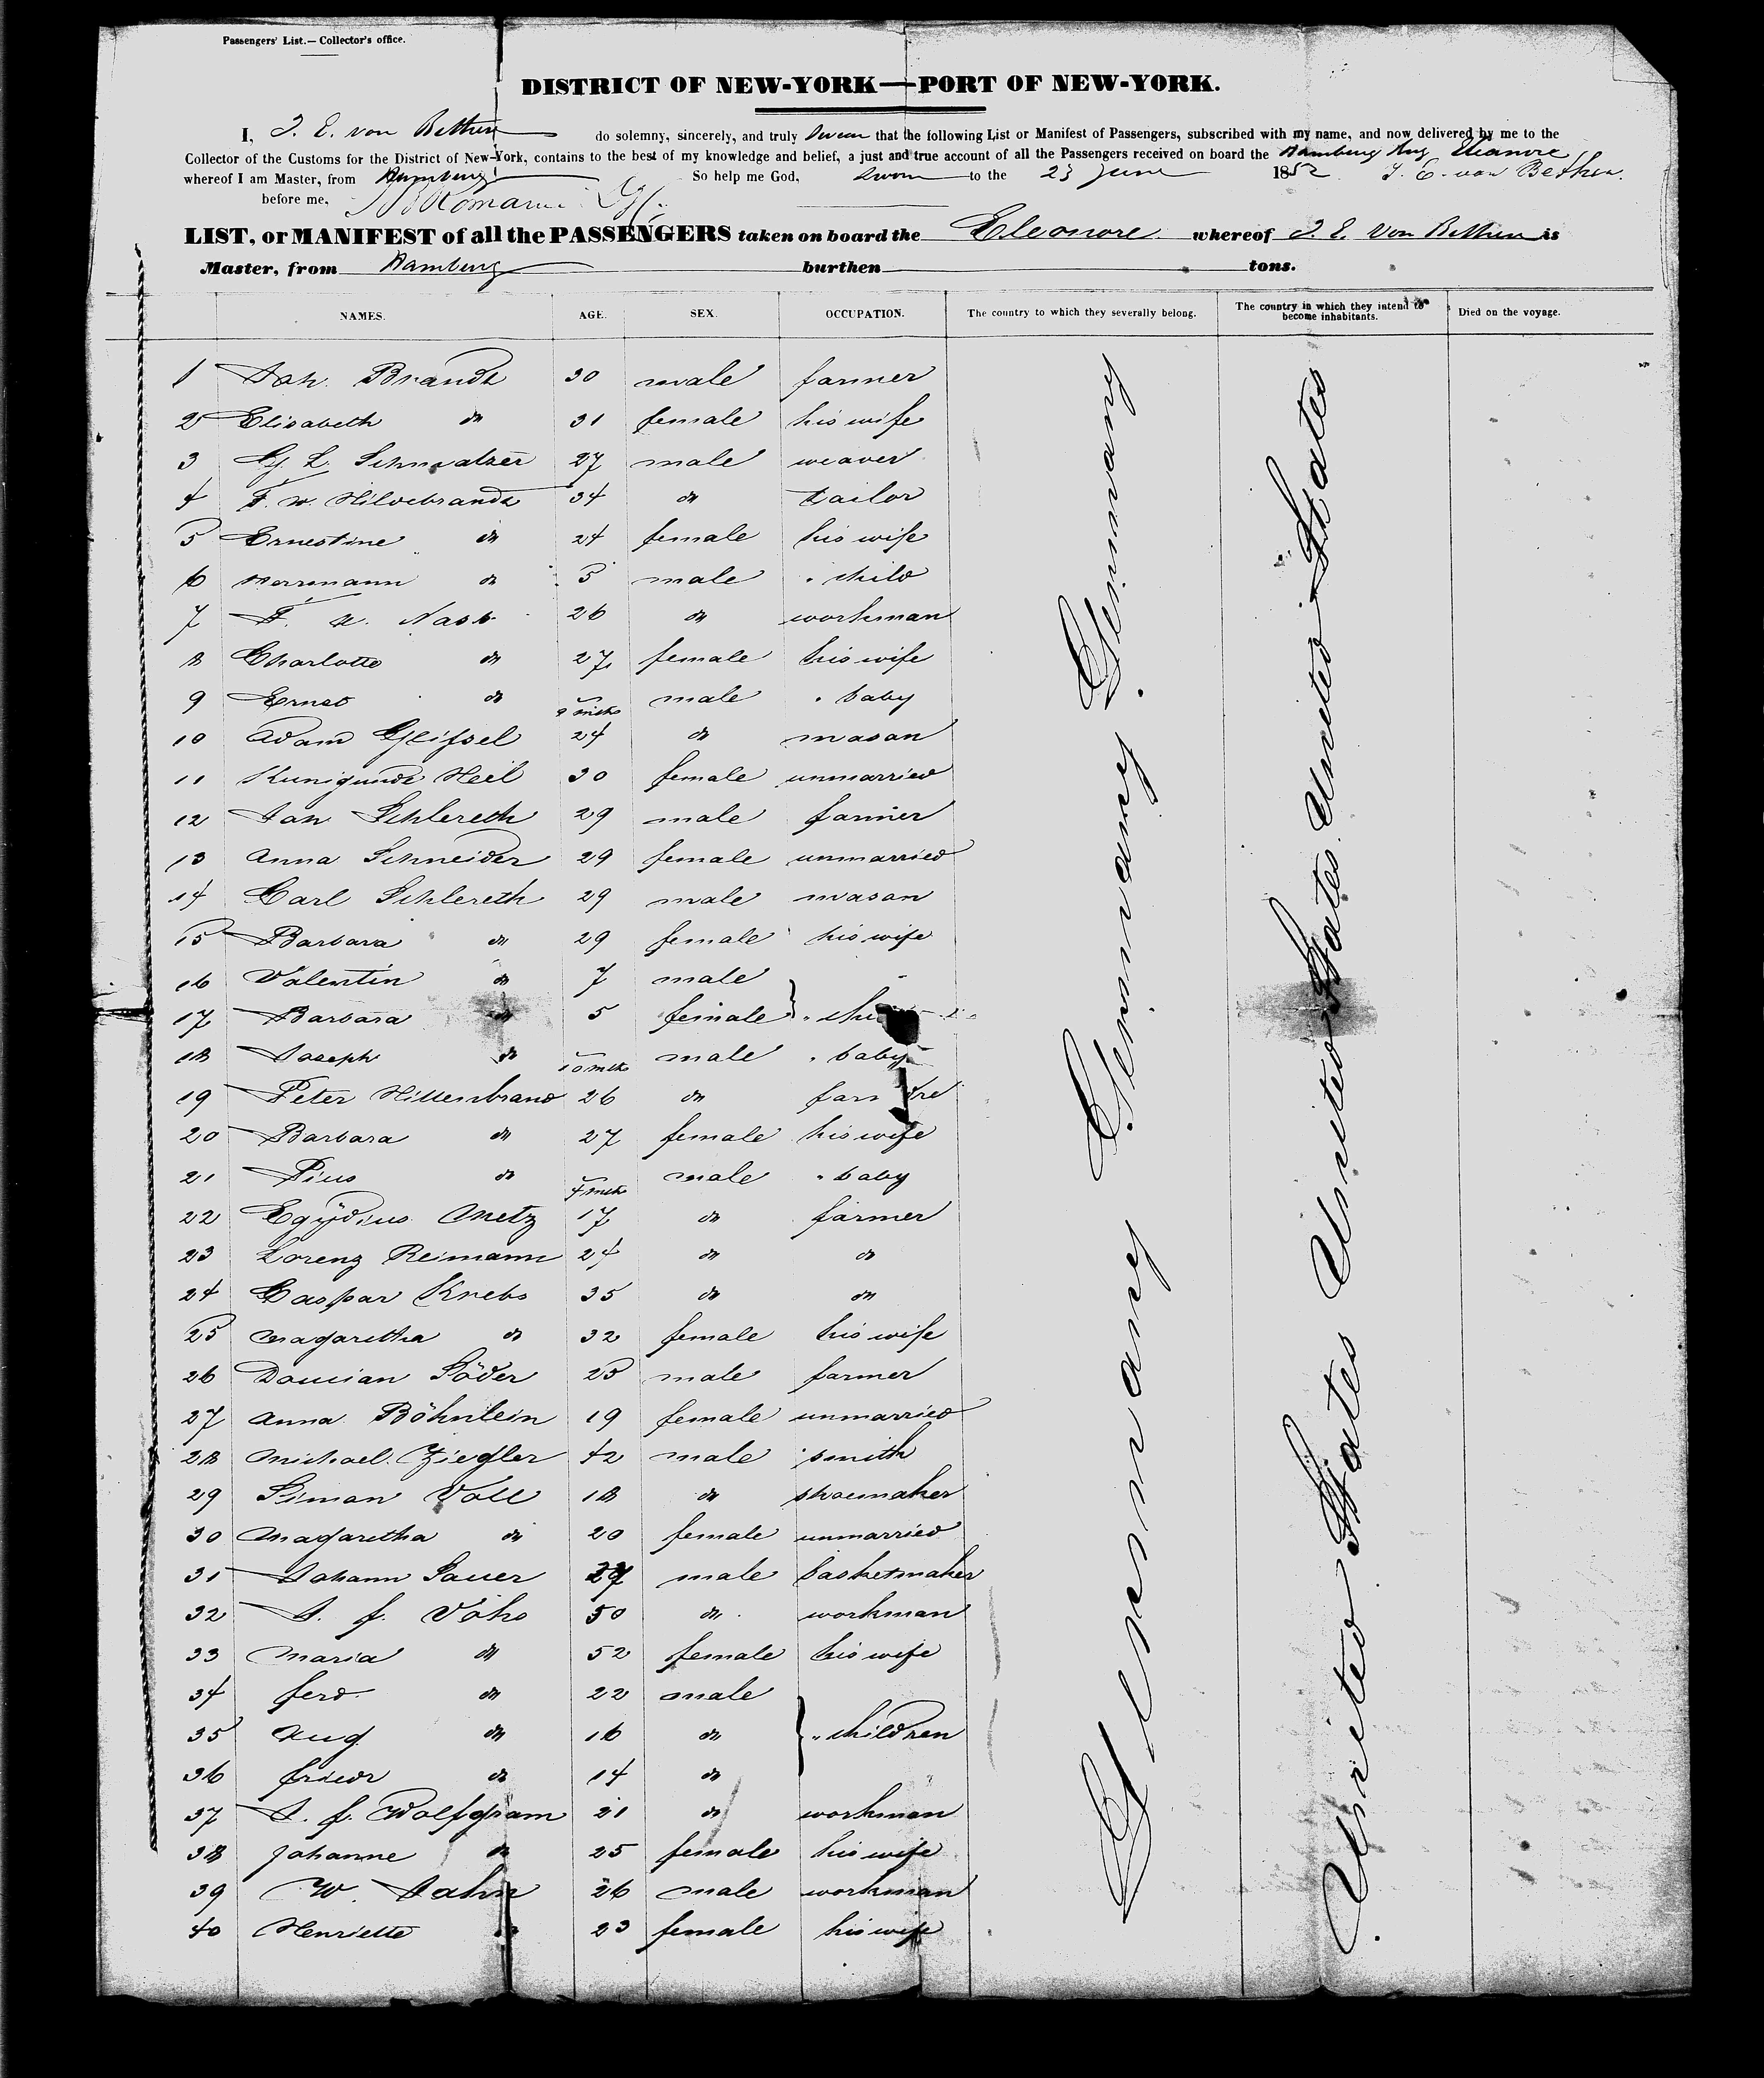 Passengers' List.—Collector's office.
DISTRICT OF NEW-YORK—PORT OF NEW-YORK.
I, J. E. von Bethen do solemny, sincerely, and truly swear that the following List or Manifest of Passengers, subscribed with my name, and now delivered by me to the
Collector of the Customs for the District of New-York, contains to the best of my knowledge and belief, a just and true account of all the Passengers received on board the Hamburg Eleanore
whereof I am Master, from Hamburg So help me God, Sworn to the 23 June 1852 J. E. von Bethen.
before me,
LIST, or MANIFEST of all the PASSENGERS taken on board the Eleonore whereof J. E. von Bethen is
Master, from Hamburg burthen tons.
NAMES. AGE. SEX. OCCUPATION. The country to which they severally belong. The country in which they intend to become inhabitants. Died on the voyage.
1 Joh. Brandt 30 male farmer
2 Elisabeth do 31 female his wife
3 G. L. Schmalzer 27 male weaver
4 F. W. Hildebrandt 34 do tailor
5 Ernestine do 24 female his wife
6 Herrmann do 5 male " child
7 F. Nass 26 do workman
8 Charlotte do 27 female his wife
9 Ernst do 9 mths male " baby
10 Adam Gleifsel 24 do mason
11 Kunigunde Heil 30 female unmarried
12 Joh Schlereth 29 male farmer
13 Anna Schneider 29 female unmarried
14 Carl Schlereth 29 male mason
15 Barbara do 29 female his wife
16 Valentin do 7 male
17 Barbara do 5 female " chi
18 Joseph do 10 mths male " baby
19 Peter Hillenbrand 26 do
20 Barbara do 27 female his wife
21 Pius do 4 mths male " baby
22 Egÿdius Metz 17 do farmer
23 Lorenz Reimann 24 do do
24 Caspar Krebs 35 do do
25 Magaretha do 32 female his wife
26 Damian Söder 25 male farmer
27 Anna Böhnlein 19 female unmarried
28 Michael Ziegler 42 male smith
29 Simon Voll 18 do shoemaker
30 Magaretha do 20 female unmarried
31 Johann Sauer 27 male basketmaker
32 J. f. Vohs 50 do workman
33 Maria do 52 female his wife
34 ferd. do 22 male
35 Aug do 16 do " children
36 friedr do 14 do
37 J. f. Wolfgram 21 do workman
38 Johanne do 25 female his wife
39 W. Jahn 26 male workman
40 Henriette do 23 female his wife
Germany Germany Germany
United States United States United States